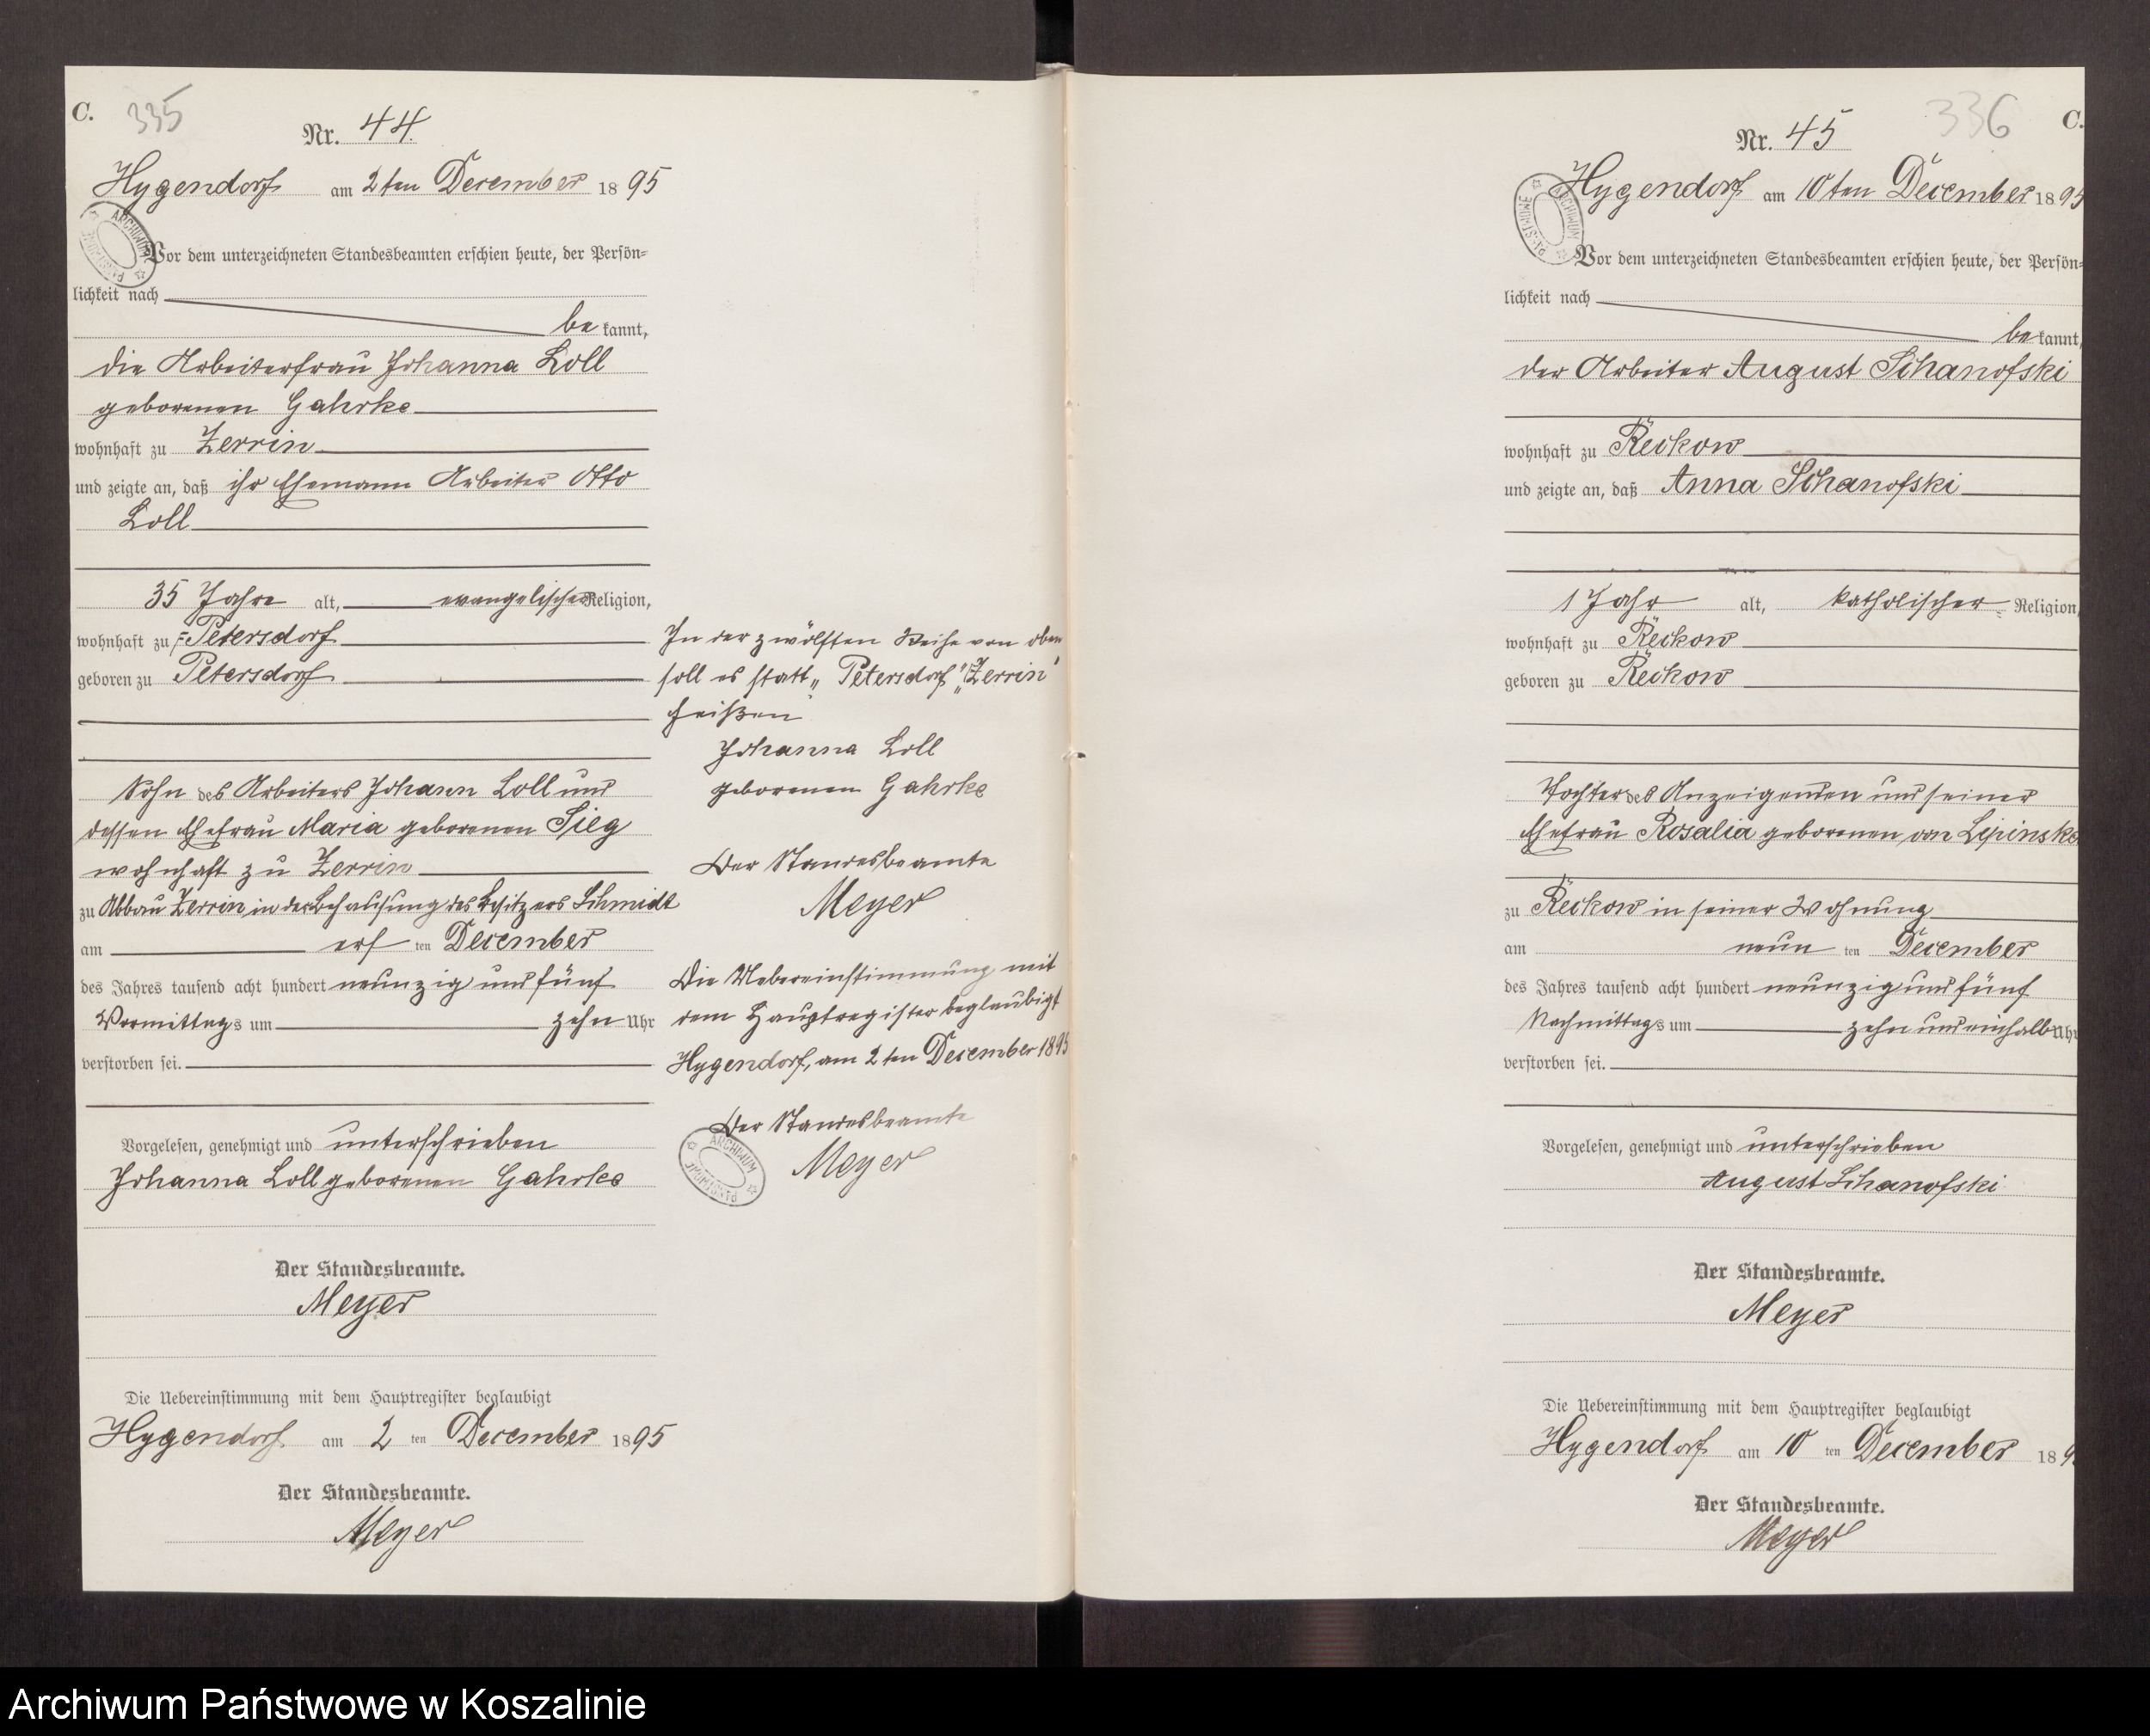 C. 335
Nr. 44.
Hygendorf am 2ten December 1895
Vor dem unterzeichneten Standesbeamten erschien heute, der Persön-
lichkeit nach
be kannt,
die Arbeiterfrau Johanna Loll
geborenen Gahrke
wohnhaft zu Zerrin
und zeigte an, daß ihr Ehemann Arbeiter Otto
Loll
35 Jahre alt, evangelischer Religion,
wohnhaft zu Petersdorf
geboren zu Petersdorf
Sohn des Arbeiters Johann Loll und
dessen Ehefrau Maria geborenen Sieg
wohnhaft zu Zerrin
zu Abbau Zerrin in der Behausung des Besitzers Schmidt
am ersten December
des Jahres tausend acht hundert neunzig und fünf
Vormittags um zehn Uhr
verstorben sei.
Vorgelesen, genehmigt und unterschrieben
Johanna Loll geborenen Gahrke
Der Standesbeamte.
Meyer
Die Uebereinstimmung mit dem Hauptregister beglaubigt
Hygendorf am 2 ten December 1895
Der Standesbeamte.
Meyer
In der zwölften Reihe von oben
soll es statt „Petersdorf" „Zerrin"
heißen
Johanna Loll
geborenen Gahrke
Der Standesbeamte
Meyer
Die Uebereinstimmung mit
dem Hauptregister beglaubigt
Hygendorf, am 2ten December 1895
Der Standesbeamte
Meyer
ARCHIWUM PAŃSTWOWE
336 C.
Nr. 45
Hygendorf am 10ten December 1895
Vor dem unterzeichneten Standesbeamten erschien heute, der Persön-
lichkeit nach
be kannt,
der Arbeiter August Schanofski
wohnhaft zu Reckow
und zeigte an, daß Anna Schanofski
1 Jahr alt, katholischer Religion,
wohnhaft zu Reckow
geboren zu Reckow
Tochter des Anzeigenden und seiner
Ehefrau Rosalia geborenen von Lipinska
zu Reckow in seiner Wohnung
am neun ten December
des Jahres tausend acht hundert neunzig und fünf
Nachmittags um zehn und einhalb Uhr
verstorben sei.
Vorgelesen, genehmigt und unterschrieben
August Schanofski
Der Standesbeamte.
Meyer
Die Uebereinstimmung mit dem Hauptregister beglaubigt
Hygendorf am 10 ten December 189
Der Standesbeamte.
Meyer
Archiwum Państwowe w Koszalinie